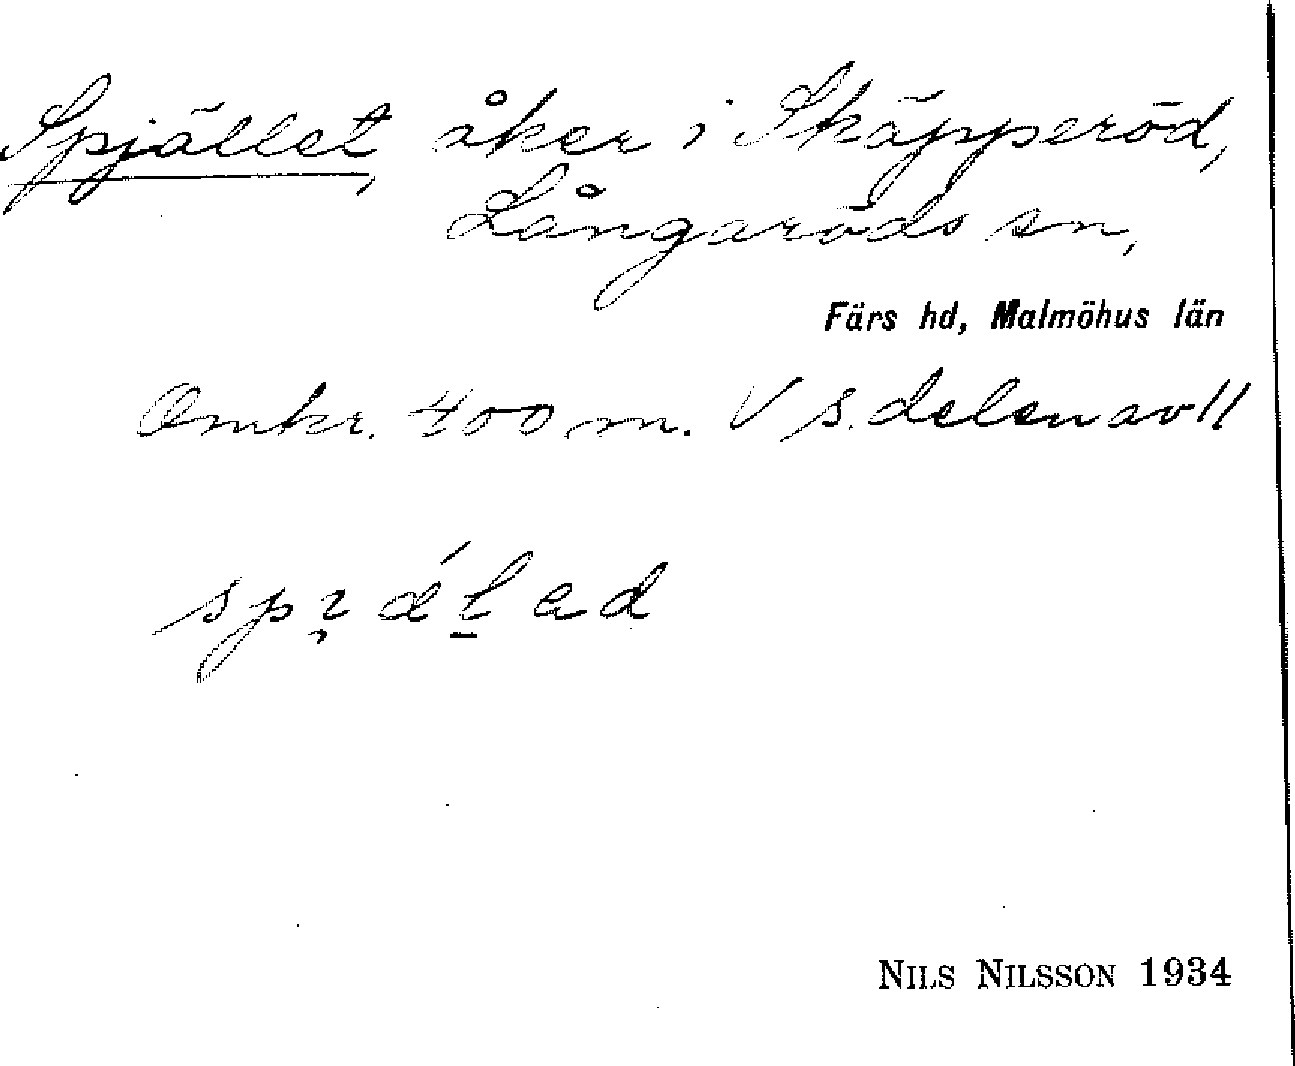 Spjället, åker i Skäpperöd,
Långaröds sn,
Färs hd, Malmöhus län
Omkr. 400 m. V s. delen av 11
NILS NILSSON 1934